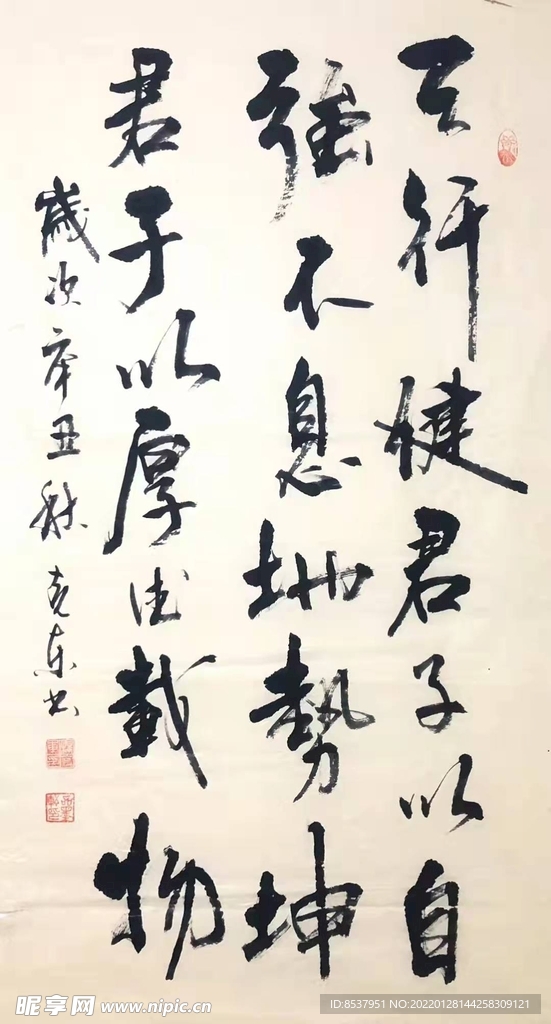 天行健君子以自
强不息地勢坤
君子以厚德載物
歲次辛丑秋克东书
昵享网 www.nipic.cn
ID:8537951 NO:20220128144258309121